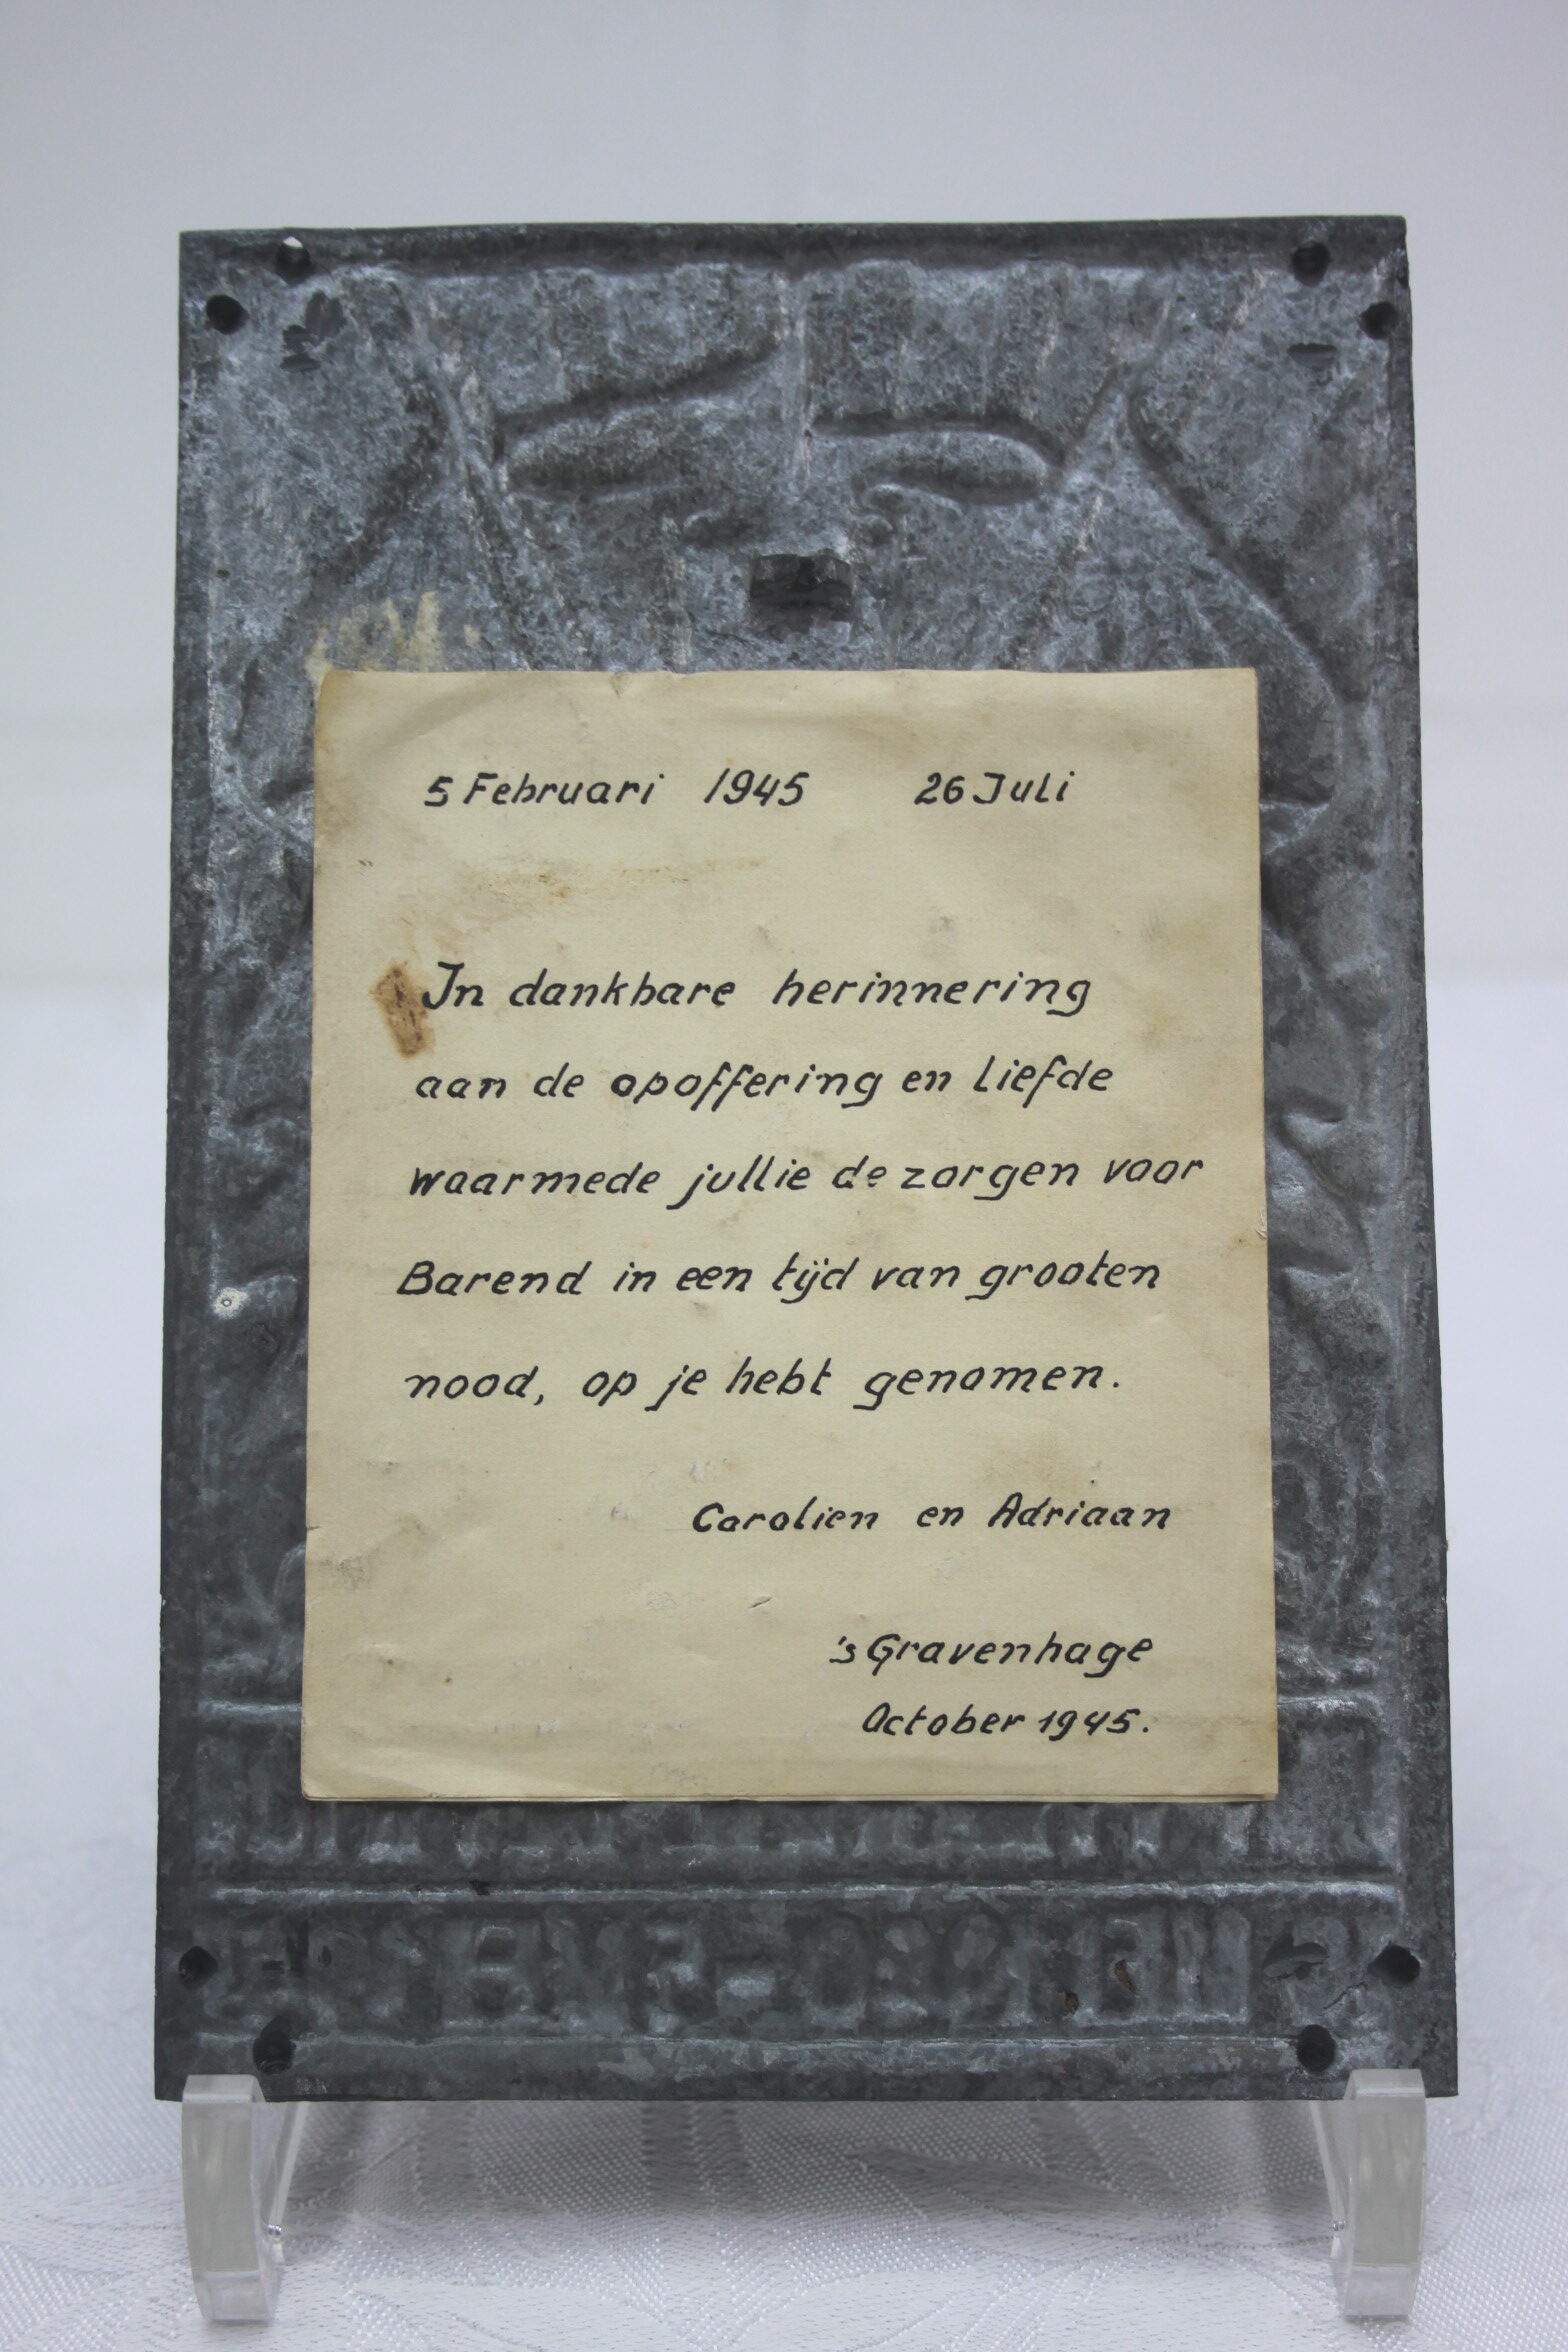 5 Februari 1945 26 Juli
In dankbare herinnering
aan de opoffering en liefde
waarmede jullie de zorgen voor
Barend in een tijd van grooten
nood, op je hebt genomen.
Carolien en Adriaan
's Gravenhage
October 1945.